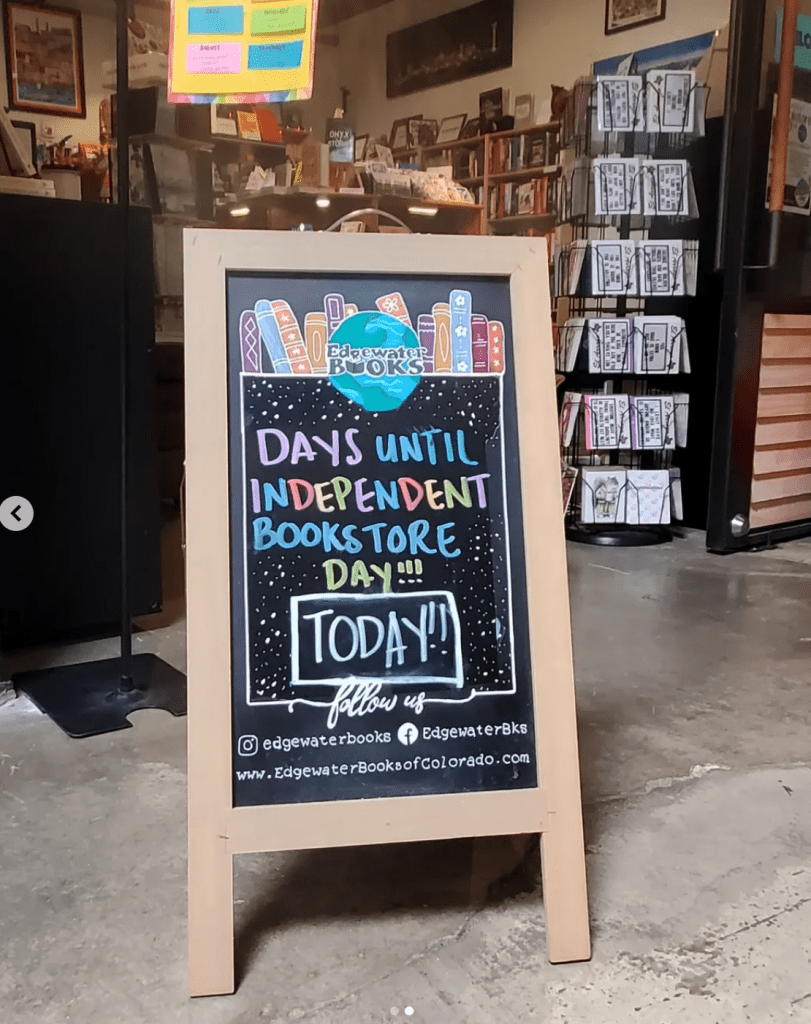 ONYX
STORM
Edgewater
BOOKS
DAYS UNTIL
INDEPENDENT
BOOKSTORE
DAY!!!
TODAY!!
follow us
edgewaterbooks EdgewaterBks
www.EdgewaterBooksofColorado.com